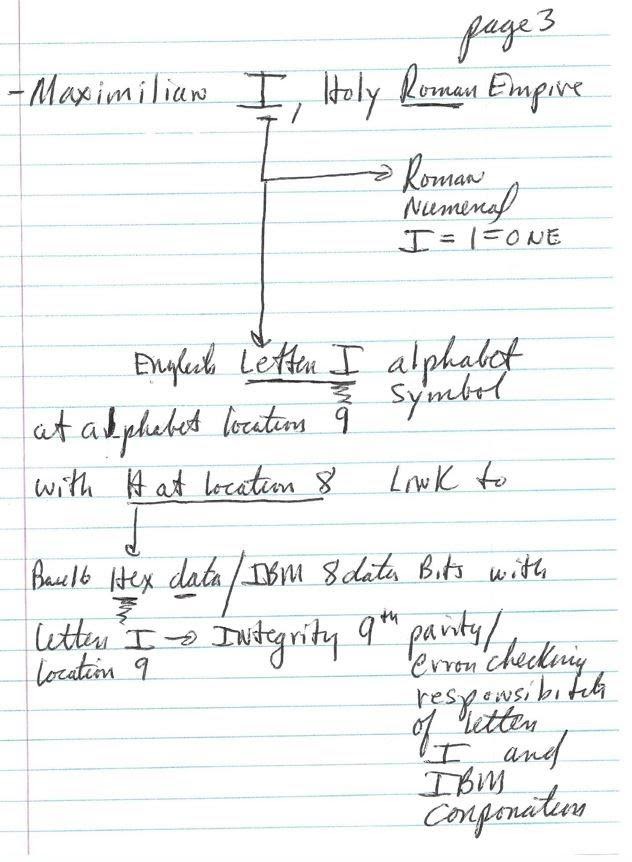 page 3
- Maximilian I, Holy Roman Empire
Roman
Numeral
I = 1 = ONE
English Letter I alphabet
symbol
at alphabet location 9
with H at location 8 LINK to
Base16 Hex data / IBM 8 data Bits with
letter I → INtegrity 9th parity/
location 9 error checking
responsibility
of letter
I and
IBM
corporation